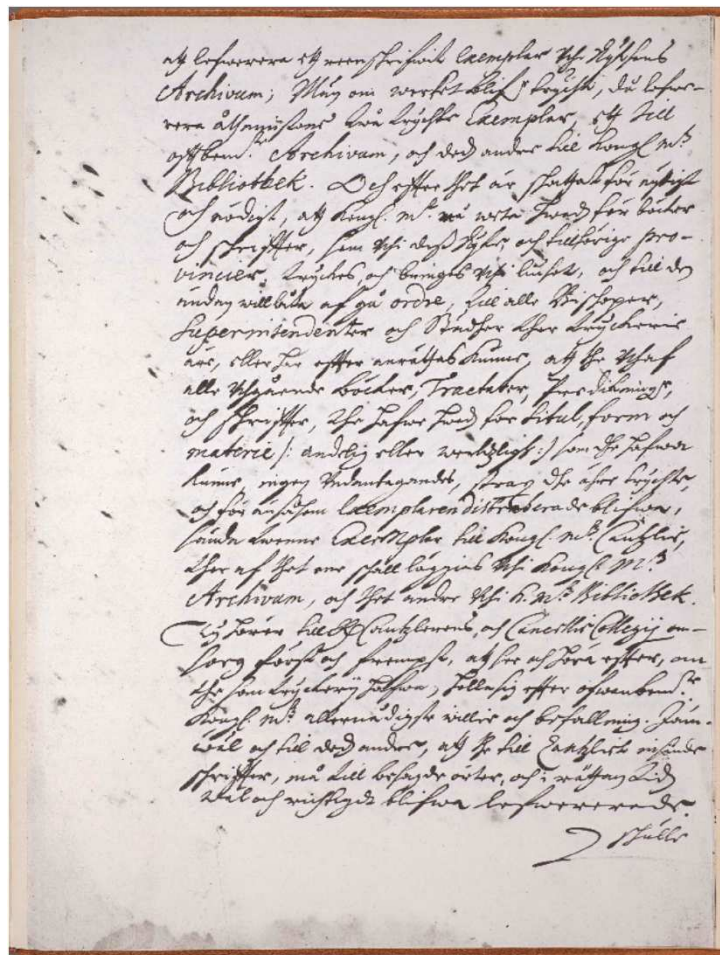 att lefwerera ett reenskrifwit Exemplar uthi Rijksens
Archivum; Män om wercket blifr tryckt, då lefwe-
rera åthminstone twå tryckte Exemplar, ett till
oftbem.te Archivum, och ded andre till Kongl. M:tz
Bibliothek. Och effter thet är skattat för nyttigt
och nödigt, att Kongl. M:t må weta hwad för böcker
och skriffter, som uthi dess Rijke och tillhörige pro-
vincier, tryckes, och bringes uthi liuset, och till den
ändan will låta afgå ordre, till alle Biskoper,
Superintendenter och Städher ther tryckerie
äre, eller här effter anrättas kunne, att the uthaf
alle uthgående böcker, Tractater, Predikningr,
och skriffter, the hafwe hwad för titul, form och
materie /: andelig eller werldzligh :/ som the hafwa
kunne, ingen undantagandes, strax the ähre tryckte,
och för än såsom Exemplaren distribuerade blifwa,
sända twenne Exemplar till Kongl. M:tz Cantzlie,
ther af thet ene skall läggies uthi Kongl. M:tz
Archivum, och thet andre uthi K. M:tz Bibliothek.
Ty hörer till Cantzlerens och Cancellie Collegij om-
sorg först och fremst, att see och höra effter, om
the som tryckerij hafwa, hålla sig effter ofwanbem.te
Kongl. M:tz allernådigste willie och befallning. Jäm-
wäl och till ded andre, att the till Cantzliet insände
skriffter, må till besagde orter, och i rättan tid
wäl och richtigdt blifwa lefwererede.
skulle